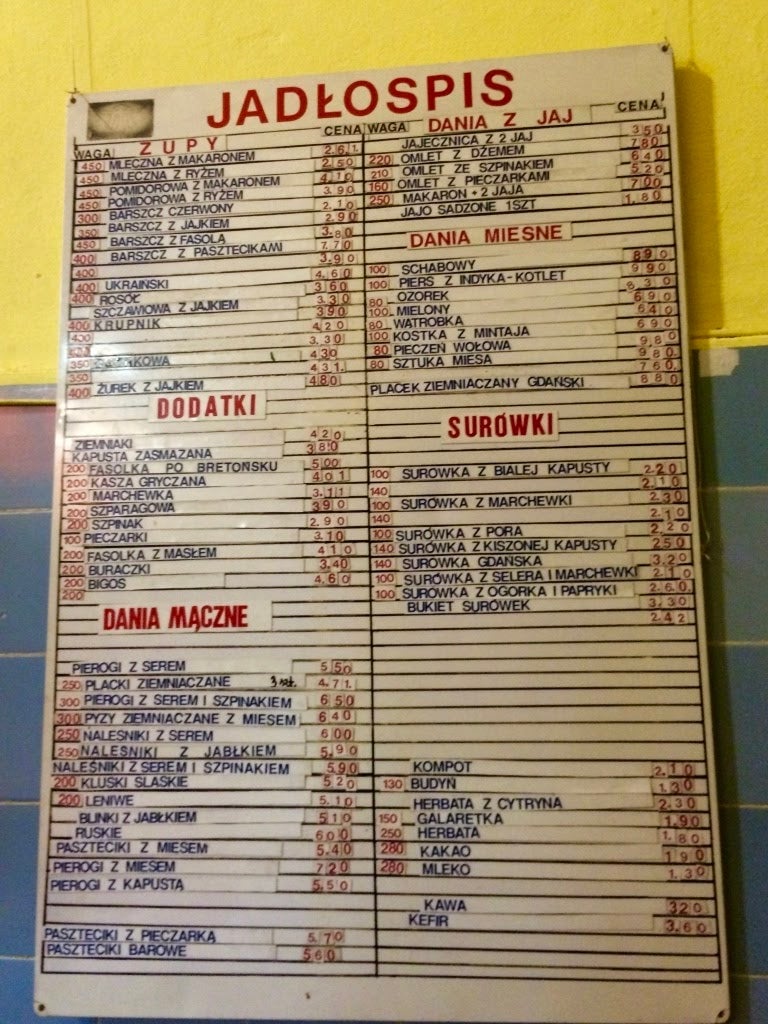 JADŁOSPIS
WAGA ZUPY CENA
450 MLECZNA Z MAKARONEM 2.61.
450 MLECZNA Z RYŻEM 2.50
450 POMIDOROWA Z MAKARONEM 4.10
450 POMIDOROWA Z RYŻEM 3.90
300 BARSZCZ CZERWONY 2.10
350 BARSZCZ Z JAJKIEM 2.90
450 BARSZCZ Z FASOLĄ 3.80
400 BARSZCZ Z PASZTECIKAMI 7.70
400 3.90
400 UKRAIŃSKI 4.60
400 ROSÓŁ 3.60
SZCZAWIOWA Z JAJKIEM 3.30
400 KRUPNIK 390
400 4.20
3.30
350 4.30
350 4.31.
400 ŻUREK Z JAJKIEM 4.80
DODATKI
ZIEMNIAKI 4.20
KAPUSTA ZASMAZANA 3.80
200 FASOLKA PO BRETOŃSKU 5.00
200 KASZA GRYCZANA 4.01
200 MARCHEWKA 3.11
200 SZPARAGOWA 3.90
200 SZPINAK 2.90
100 PIECZARKI 3.10
200 FASOLKA Z MASŁEM 4.10
200 BURACZKI 3.40
200 BIGOS 4.60
200
DANIA MĄCZNE
PIEROGI Z SEREM 5.50
250 PLACKI ZIEMNIACZANE 3 szt. 4.71.
300 PIEROGI Z SEREM I SZPINAKIEM 6.50
300 PYZY ZIEMNIACZANE Z MIESEM 6.40
250 NALEŚNIKI Z SEREM 6.00
250 NALEŚNIKI Z JABŁKIEM 5.90
NALEŚNIKI Z SEREM I SZPINAKIEM 5.90
200 KLUSKI SLASKIE 5.20
200 LENIWE 5.10
BLINKI Z JABŁKIEM 5.10
RUSKIE 6.00
PASZTECIKI Z MIESEM 5.40
PIEROGI Z MIESEM 7.20
PIEROGI Z KAPUSTĄ 5.50
PASZTECIKI Z PIECZARKĄ 5.70
PASZTECIKI BAROWE 5.60
WAGA DANIA Z JAJ CENA
JAJECZNICA Z 2 JAJ 3.50
220 OMLET Z DŻEMEM 7.80
210 OMLET ZE SZPINAKIEM 6.40
160 OMLET Z PIECZARKAMI 5.20
250 MAKARON + 2 JAJA 7.00
JAJO SADZONE 1SZT 1.80
DANIA MIESNE
100 SCHABOWY 8.90
100 PIERŚ Z INDYKA-KOTLET 9.90
80 OZOREK 8.30
100 MIELONY 6.90
80 WATROBKA 6.40
100 KOSTKA Z MINTAJA 6.90
80 PIECZEŃ WOŁOWA 9.80
80 SZTUKA MIESA 9.80.
7.60.
PLACEK ZIEMNIACZANY GDAŃSKI 8.80
SURÓWKI
100 SURÓWKA Z BIALEJ KAPUSTY 2.20
140 2.10
100 SURÓWKA Z MARCHEWKI 2.30
140 2.10
100 SURÓWKA Z PORA 2.20
140 SURÓWKA Z KISZONEJ KAPUSTY 2.50
140 SURÓWKA GDAŃSKA 3.20
100 SURÓWKA Z SELERA I MARCHEWKI 2.10
100 SURÓWKA Z OGORKA I PAPRYKI 2.60.
BUKIET SURÓWEK 3.30
2.42
KOMPOT 2.10
130 BUDYŃ 1.30
HERBATA Z CYTRYNĄ 2.30
150 GALARETKA 1.90
250 HERBATA 1.80
280 KAKAO 1.90
280 MLEKO 1.30
KAWA 3.20
KEFIR 3.60